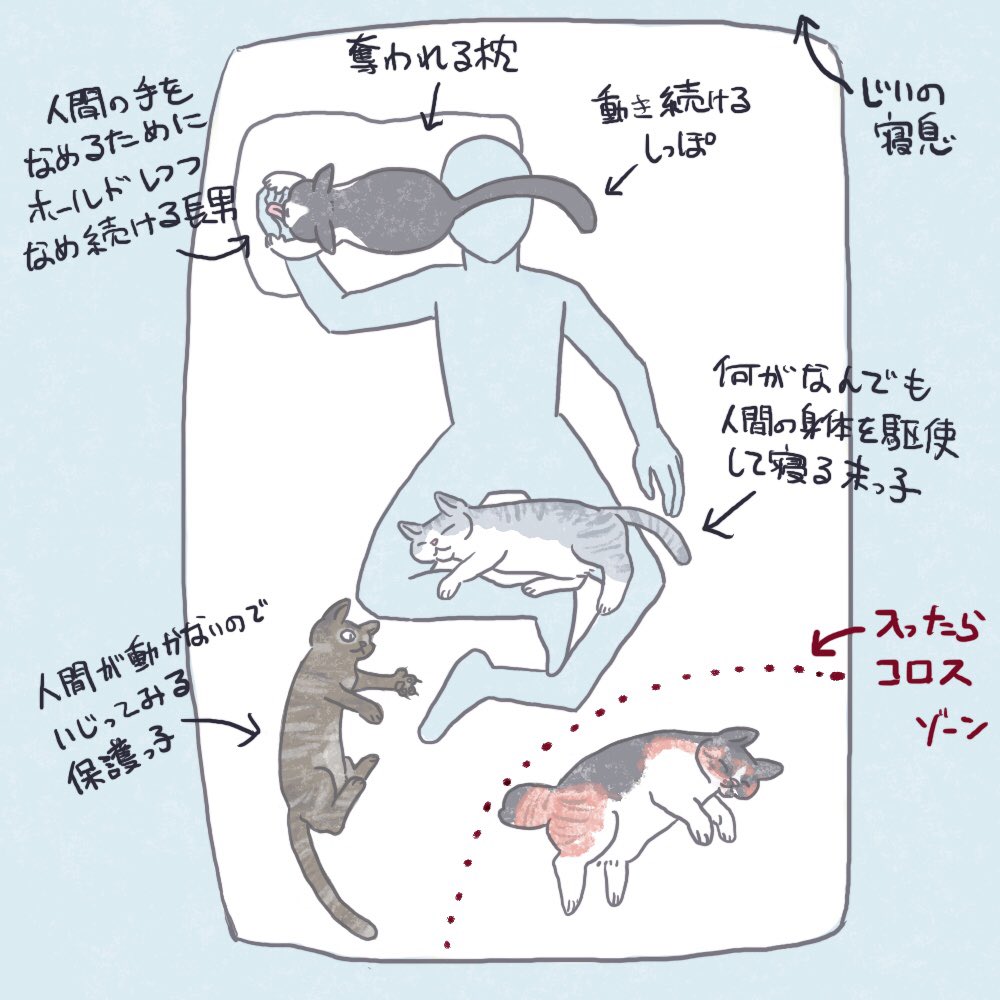 奪われる枕
人間の手を
なめるために
ホールドしつつ
なめ続ける長男
動き続ける
しっぽ
じいの
寝息
何がなんでも
人間の身体を駆使
して寝る末っ子
人間が動かないので
いじってみる
保護っ子
入ったら
コロス
ゾーン